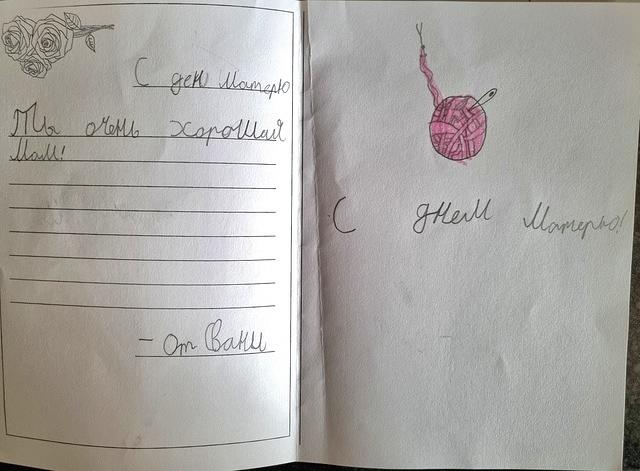 С ден Матерю
Ты очень хорошая
Мам!
- от Вани
С днем Матерю!